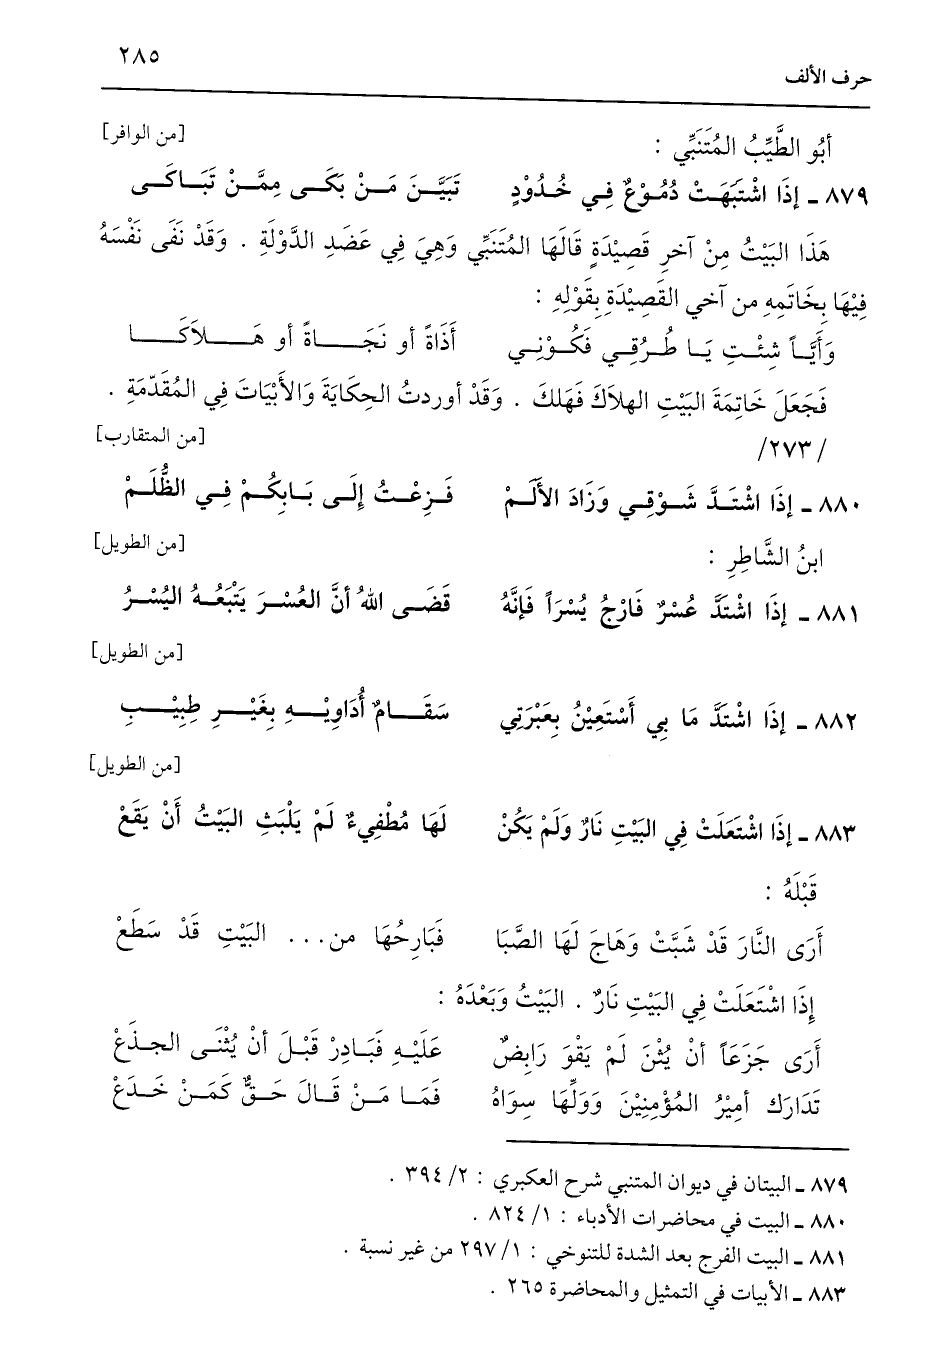 ٢٨٥
حرف الألف
أبُو الطَّيِّبُ المُتَنَبِّي : [من الوافر]
٨٧٩ ـ إذَا اشْتَبَهَتْ دُمُوْعٌ فِي خُدُوْدٍ تَبَيَّنَ مَنْ بَكَى مِمَّنْ تَبَاكَى
هَذَا البَيْتُ مِنْ آخرِ قَصِيْدَةٍ قَالَهَا المُتَنَبِّي وَهِيَ فِي عَضَدِ الدَّوْلَةِ . وَقَدْ نَفَى نَفْسَهُ
فِيْهَا بِخَاتَمِهِ من آخي القَصِيْدَةِ بِقَوْلِهِ :
وَأيَّاً شِئْتِ يَا طُرُقِي فَكُوْنِي أذَاةً أو نَجَاةً أو هَلاَكَا
فَجَعَلَ خَاتِمَةَ البَيْتِ الهلاَكَ فَهَلكَ . وَقَدْ أوردتُ الحِكَايَةَ وَالأبْيَاتَ فِي المُقَدّمَةِ .
/ ٢٧٣/ [من المتقارب]
٨٨٠ ـ إذَا اشْتَدَّ شَوْقِي وَزَادَ الألَمْ فَزِعْتُ إلَى بَابِكُمْ فِي الظُّلَمْ
ابنُ الشَّاطِرِ : [من الطويل]
٨٨١ ـ إذَا اشْتَدَّ عُسْرٌ فَارْجُ يُسْرَاً فَإنَّهُ قَضَى اللهُ أنَّ العُسْرَ يَتْبَعُهُ اليُسْرُ
[من الطويل]
٨٨٢ ـ إذَا اشْتَدَّ مَا بِي أسْتَعِيْنُ بِعَبْرَتِي سَقَامٌ أُدَاوِيْهِ بِغَيْرِ طِبِيْبِ
[من الطويل]
٨٨٣ ـ إذَا اشْتَعَلَتْ فِي البَيْتِ نَارٌ وَلَمْ يَكُنْ لَهَا مُطْفِيءٌ لَمْ يَلْبَثِ البَيْتُ أنْ يَقَعْ
قَبْلَهُ :
أرَى النَّارَ قَدْ شَبَّتْ وَهَاجَ لَهَا الصَّبَا فَبَارِحُهَا من... البَيْتِ قَدْ سَطَعْ
إِذَا اشْتَعَلَتْ فِي البَيْتِ نَارٌ . البَيْتُ وَبَعْدَهُ :
أرَى جَزَعَاً أنْ يُثْنَ لَمْ يَقْوَ رَابِضٌ عَلَيْهِ فَبَادِرْ قَبْلَ أنْ يُثْنَى الجذَعْ
تَدَارَك أمِيْرُ المُؤْمِنِيْنَ وَوَلِّهَا سِوَاهُ فَمَا مَنْ قَالَ حَقٌّ كَمَنْ خَدَعْ
٨٧٩ ـ البيتان في ديوان المتنبي شرح العكبري : ٢/ ٣٩٤ .
٨٨٠ ـ البيت في محاضرات الأدباء : ١/ ٨٢٤ .
٨٨١ ـ البيت الفرج بعد الشدة للتنوخي : ١/ ٢٩٧ من غير نسبة .
٨٨٣ ـ الأبيات في التمثيل والمحاضرة ٢٦٥ .